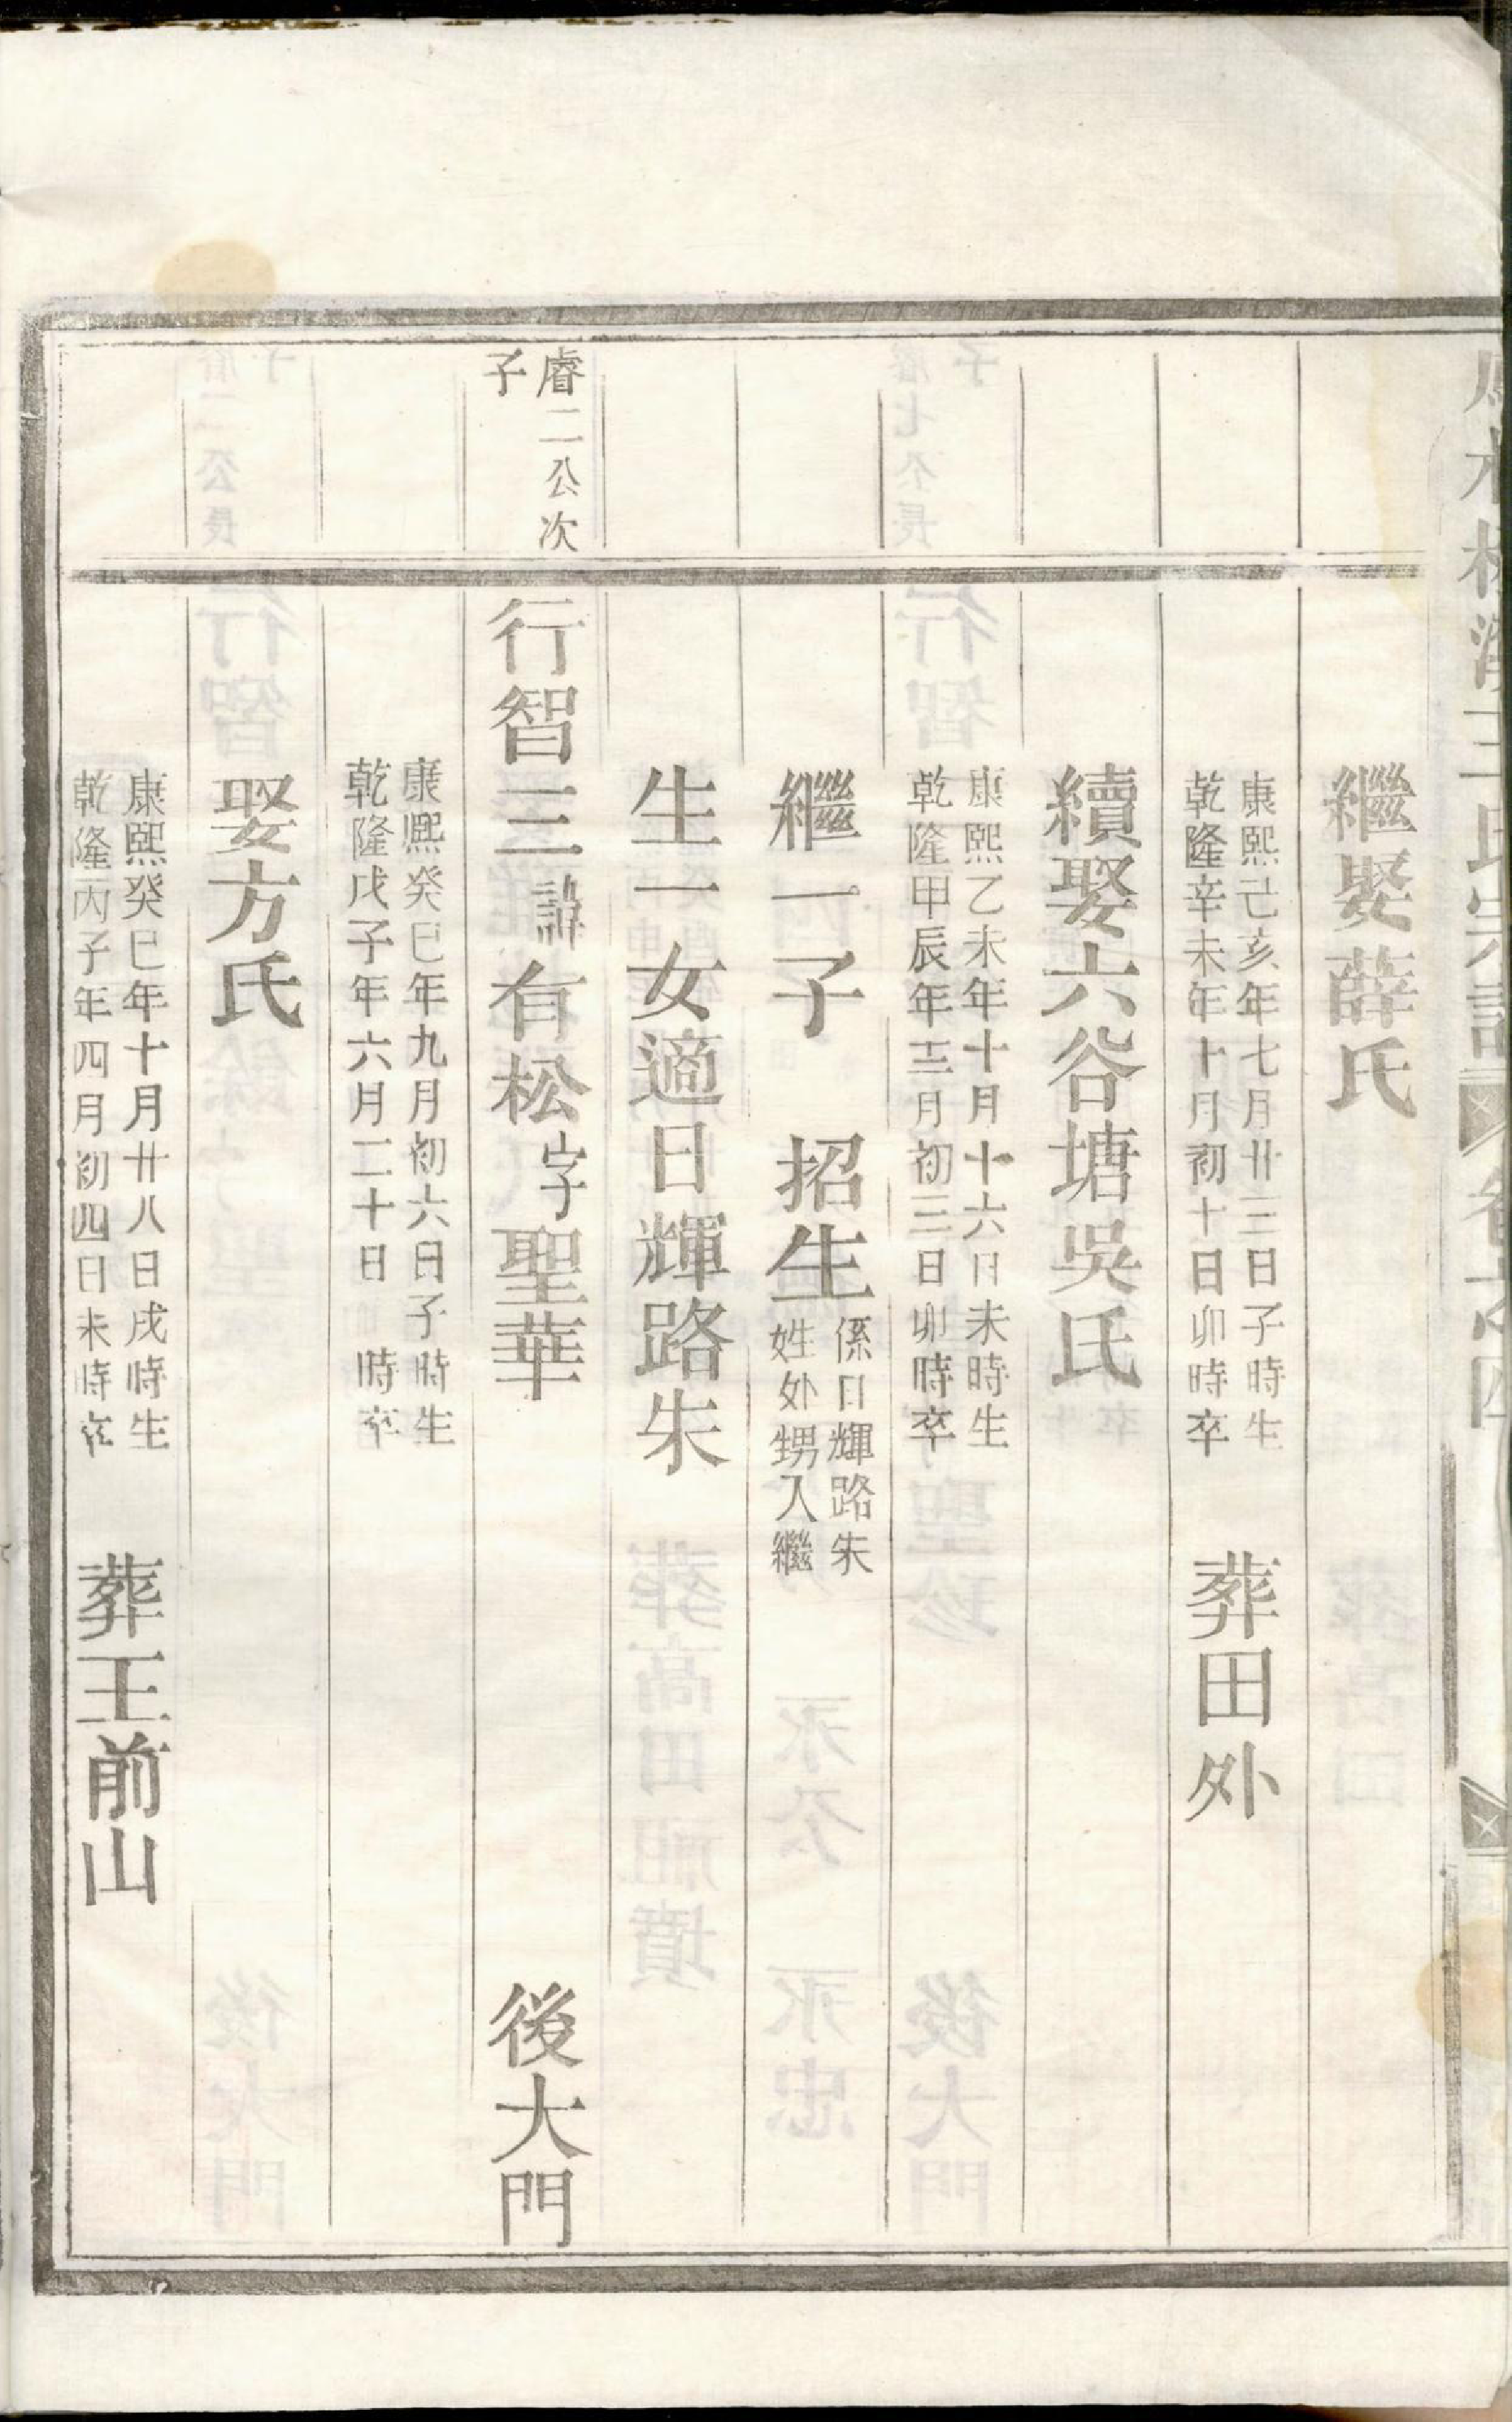 王氏宗譜
繼娶薛氏
康熙己亥年七月廿三日子時生
乾隆辛未年十月初十日卯時卒
葬田外
續娶六谷塘吳氏
康熙乙未年十月十六日未時生
乾隆甲辰年三月初三日卯時卒
繼一子 招生
係日輝路朱
姓外甥入繼
生一女適日輝路朱
睿二公次
子
行智三諱有松字聖華 後大門
康熙癸巳年九月初六日子時生
乾隆戊子年六月二十日 時卒
娶方氏
康熙癸巳年十月廿八日戌時生
乾隆丙子年四月初四日未時卒
葬王前山